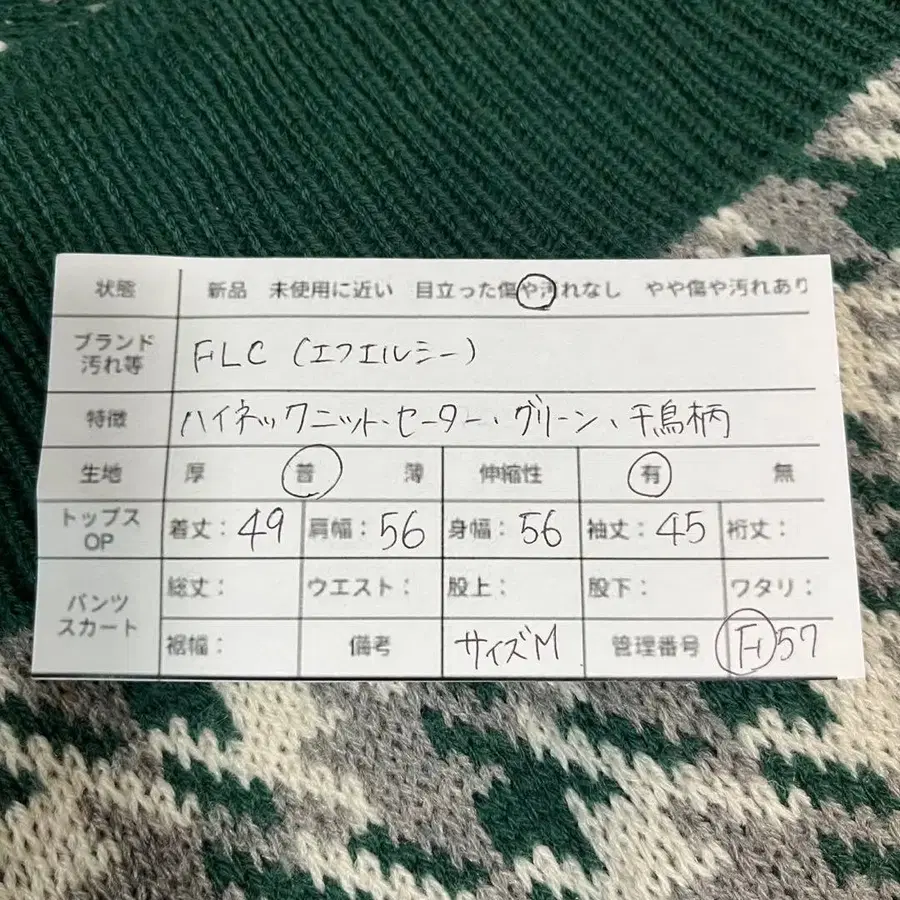 状態 新品 未使用に近い 目立った傷や汚れなし やや傷や汚れあり
ブランド 汚れ等 FLC (エフエルシー)
特徴 ハイネックニット、セーター、グリーン、千鳥柄
生地 厚 普 薄 伸縮性 有 無
トップス OP 着丈：49 肩幅：56 身幅：56 袖丈：45 裄丈：
パンツ スカート 総丈： ウエスト： 股上： 股下： ワタリ：
裾幅： 備考 サイズM 管理番号 F57